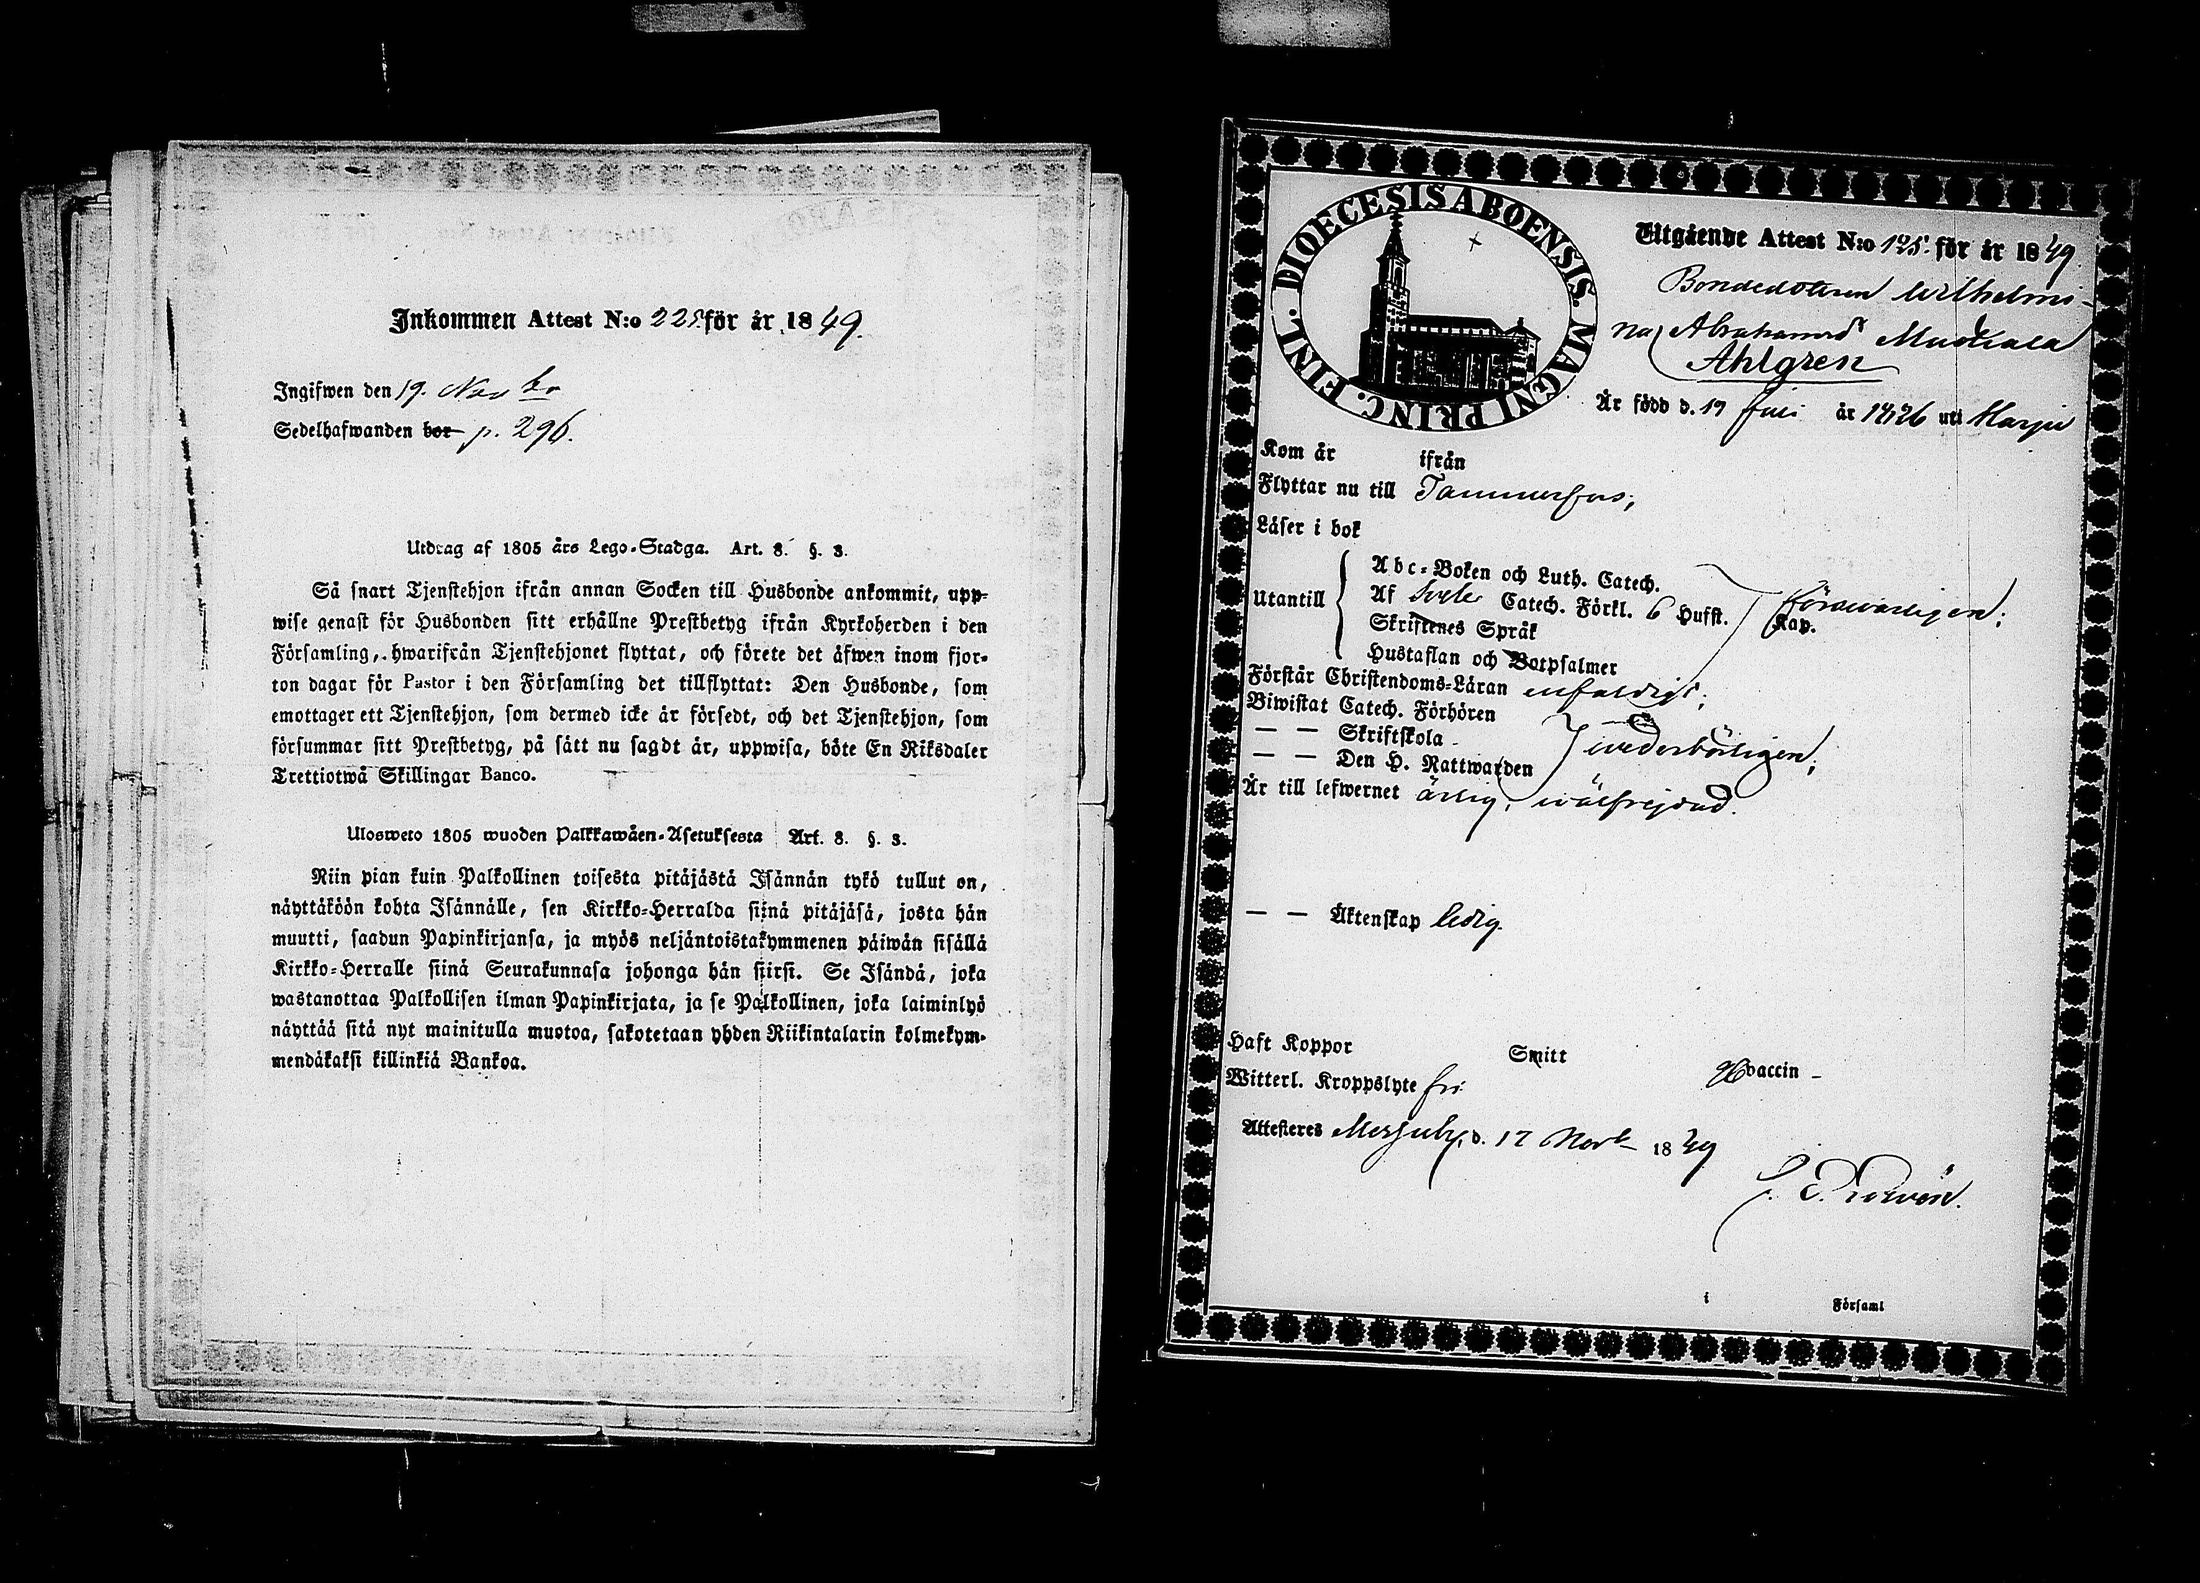 Inkommen Attest N:o 225. för år 1849.
Ingifwen den 19. Nov br
Sedelhafwanden bor p. 296.
Utdrag af 1805 års Lego-Stadga. Art. 8. §. 3.
Så snart Tjenstehjon ifrån annan Socken till Husbonde ankommit, upp-
wise genast för Husbonden sitt erhållne Prestbetyg ifrån Kyrkoherden i den
Församling, hwarifrån Tjenstehjonet flyttat, och förete det äfwen inom fjor-
ton dagar för Pastor i den Församling det tillflyttat: Den Husbonde, som
emottager ett Tjenstehjon, som dermed icke är försedt, och det Tjenstehjon, som
försummar sitt Prestbetyg, på sätt nu sagdt är, uppwisa, böte En Riksdaler
Trettiotwå Skillingar Banco.
Ulosweto 1805 wuoden Palkkawäen-Asetuksesta Art. 8. §. 3.
Niin pian kuin Palkollinen toisesta pitäjästä Isännän tykö tullut on,
näyttäköön kohta Isännälle, sen Kirkko-Herralda siinä pitäjäsä, josta hän
muutti, saadun Papinkirjansa, ja myös neljäntoistakymmenen päiwän sisällä
Kirkko-Herralle siinä Seurakunnasa johonga hän siirsi. Se Isändä, joka
wastanottaa Palkollisen ilman Papinkirjata, ja se Palkollinen, joka laiminlyö
näyttää sitä nyt mainitulla muotoa, sakotetaan yhden Riikintalarin kolmekym-
mendäkaksi killinkiä Bankoa.
DIOECESIS ABOENSIS. MAGNI PRINC. FINL.
Utgående Attest N:o 125. för år 1849.
Bondedottren Wilhelmi-
na Abrahamsdr
Ahlgren
Är född d. 19 Juli år 1826 uti Harju
Kom år ifrån
Flyttar nu till Tammerfors;
Läser i bok
Utantill
Abc-Boken och Luth. Catech.
Af Sveb. Catech. Förkl. 6 Hufst.
försvarligen;
Skriftenes Språk Kap.
Hustaflan och Botpsalmer
Förstår Christendoms-Läran enfaldigt;
Biwistat Catech. Förhören
— — Skriftskola
wederbörligen;
— — Den H. Nattwarden
Är till lefwernet ärlig, wälfrejdad.
— — Äktenskap ledig.
Haft Koppor Smitt vaccin
Witterl. Kroppslyte fri
Attesteres Messuby, d. 17 Novb 1849
i Församl